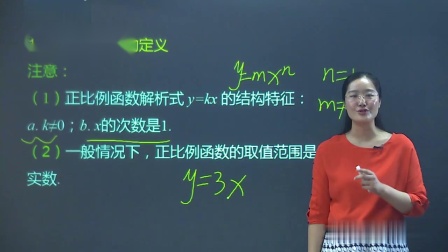 的定义
注意：
y=mxⁿ n=
m≠
（1）正比例函数解析式 y=kx 的结构特征：
a. k≠0；b. x的次数是1.
（2）一般情况下，正比例函数的取值范围是
实数.
y=3x